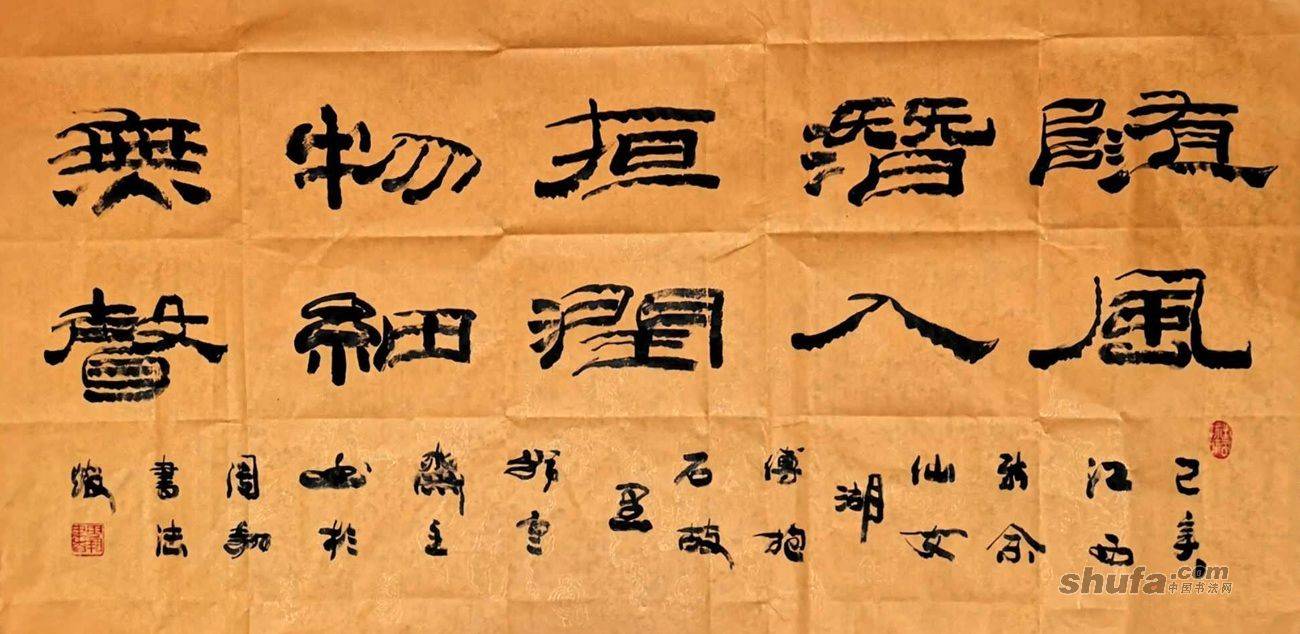 隨風
潛入
恒潤
物細
無聲
己亥
江西
新余
仙女
湖
傅抱
石故
里
齋主
書於
書法
shufa.com
中国书法网